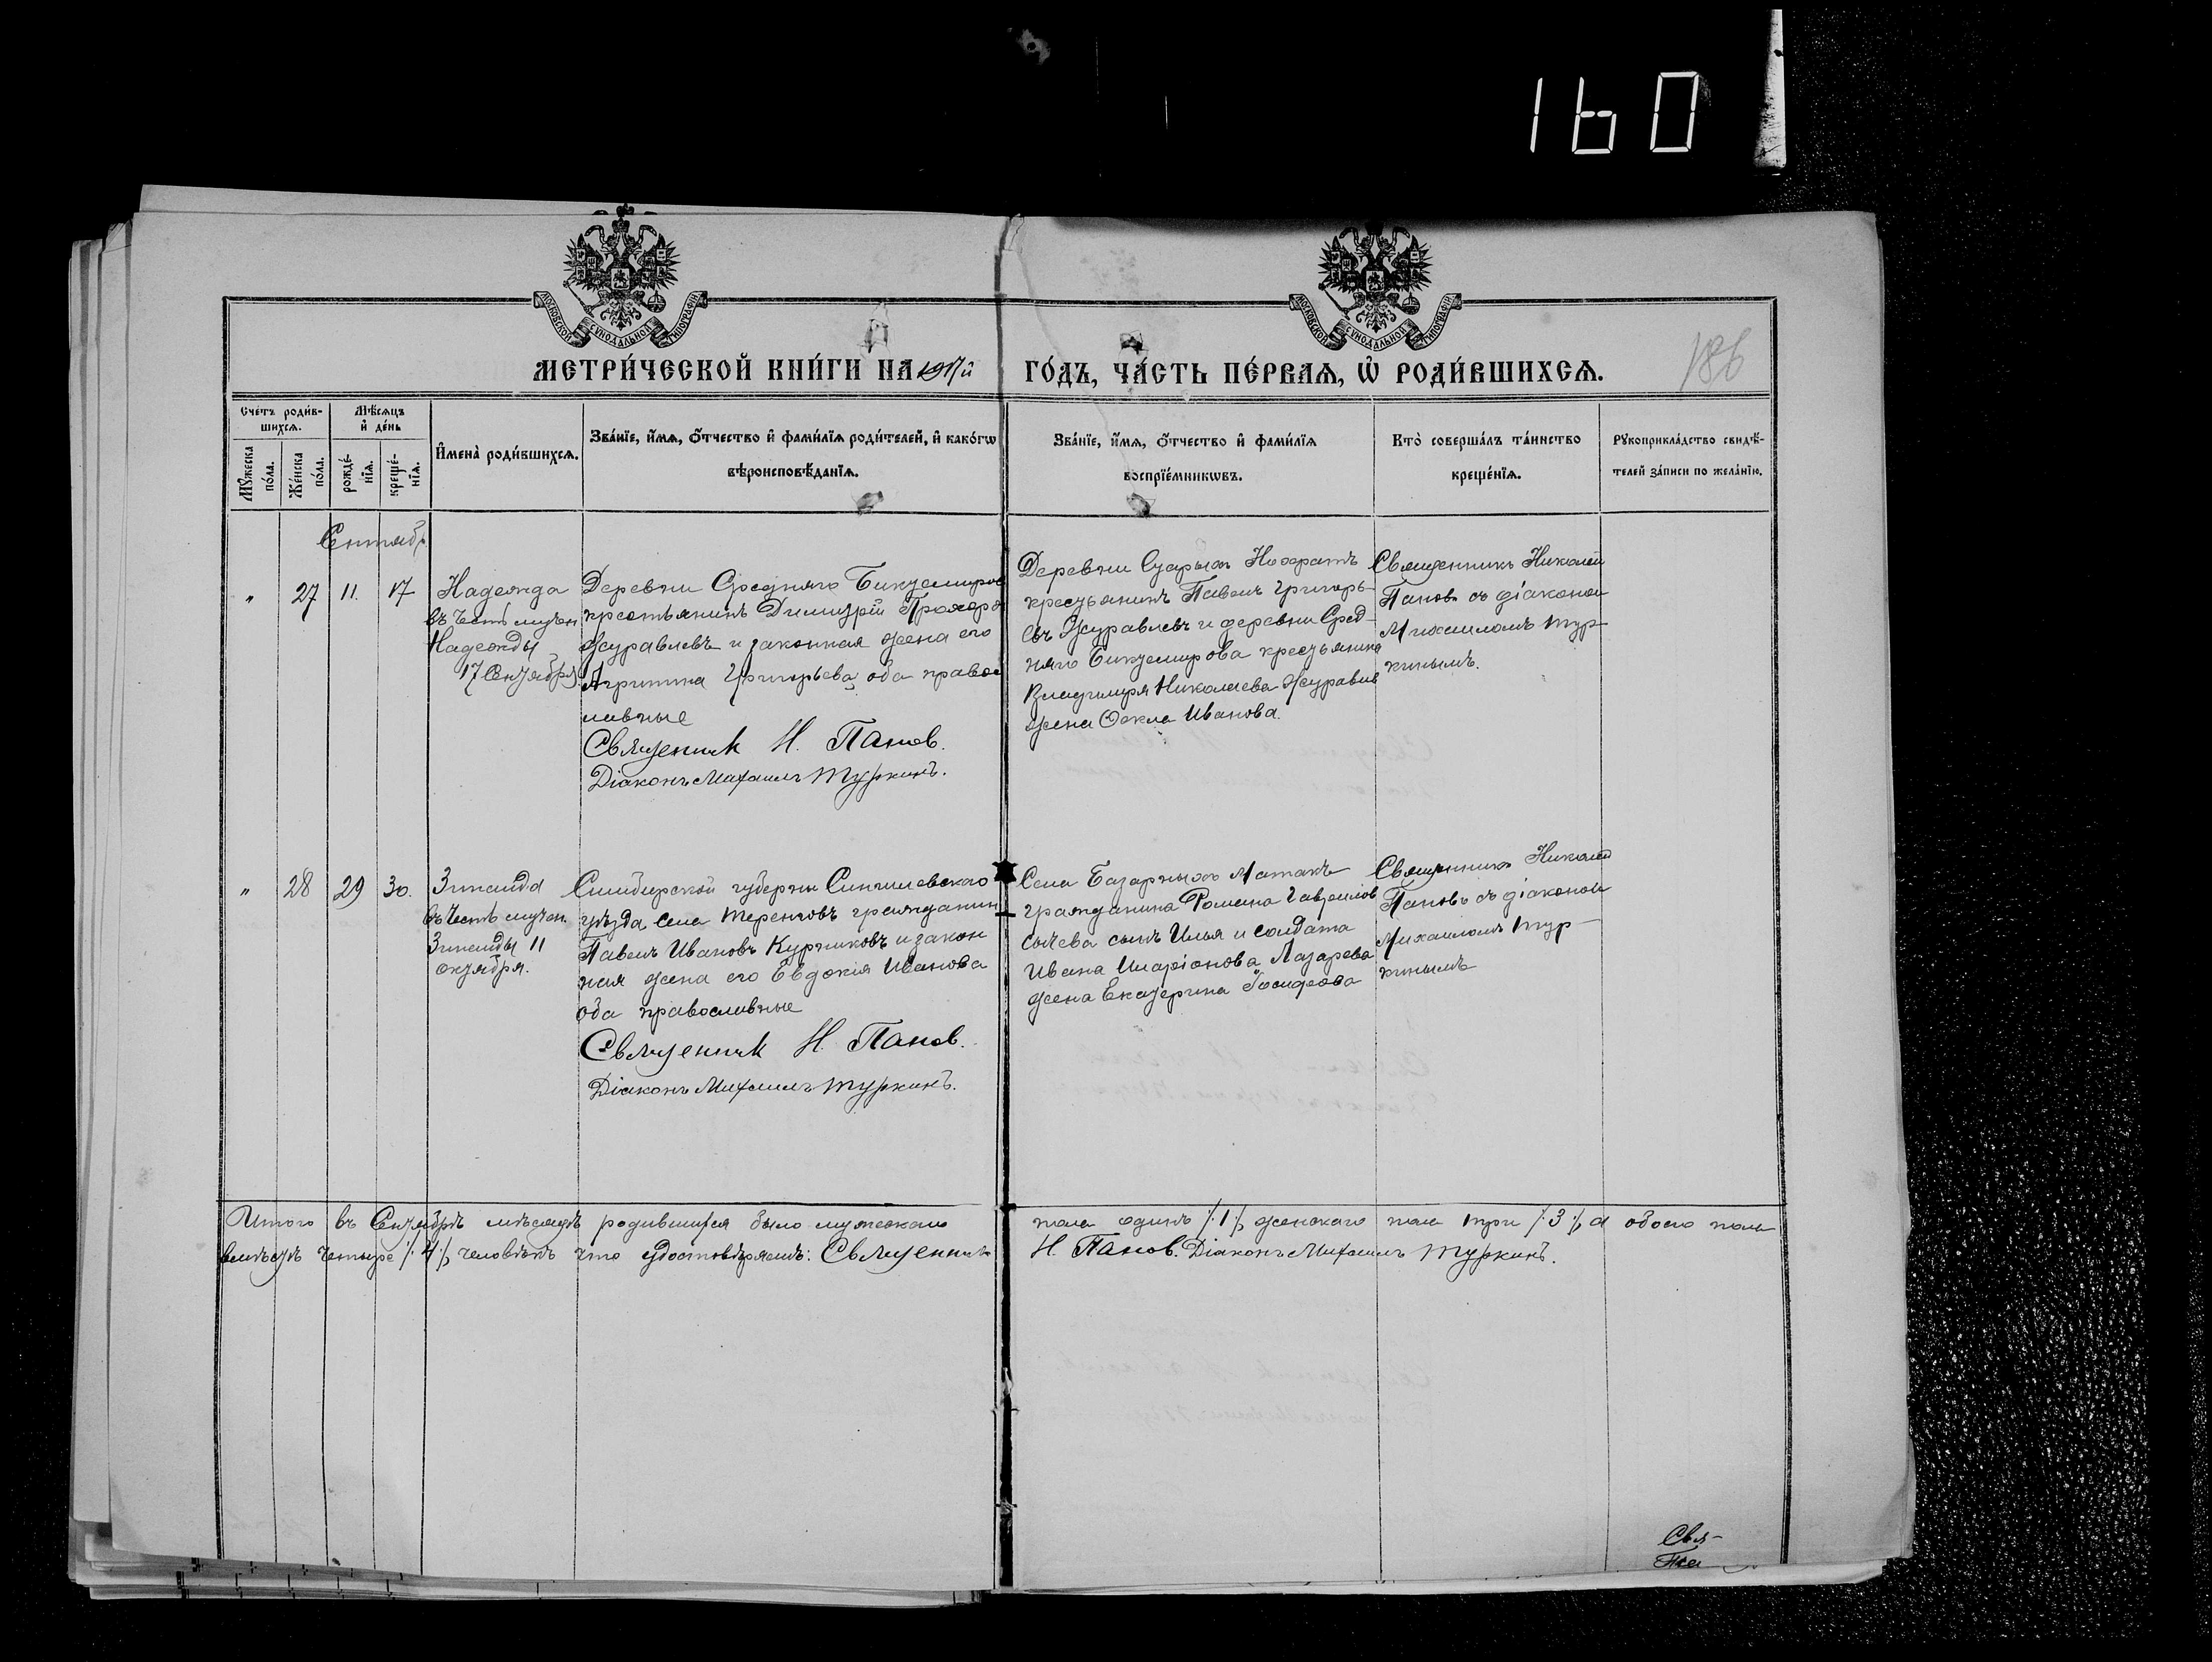 160
МОСКОВСКОЙ СѴНОДАЛЬНОЙ ТИПОГРАФІИ
МОСКОВСКОЙ СѴНОДАЛЬНОЙ ТИПОГРАФІИ
МЕТРИ́ЧЕСКОЙ КНИ́ГИ НА 1917й ГО́ДЪ, ЧА́СТЬ ПЕ́РВАѦ, Ѡ҆ РОДИ́ВШИХСѦ.
186
Сче́тъ роди́в-
шихсѧ.
Мꙋ́жеска по́ла.
Же́нска по́ла.
Мѣ́сѧцъ
и҆ де́нь
рожде́-
нїѧ.
креще́-
нїѧ.
И҆мена̀ роди́вшихсѧ.
Зва́нїе, и҆́мѧ, ѻ҆́тчество и҆ фами́лїѧ роди́телей, и҆ како́гѡ
вѣроисповѣ́данїѧ.
Зва́нїе, и҆́мѧ, ѻ҆́тчество и҆ фами́лїѧ
воспрїе́мникѡвъ.
Кто̀ соверша́лъ та́инство
креще́нїѧ.
Рꙋкоприкла́дство свидѣ́-
телей за́писи по жела́нїю.
Сентябр
" 27 11. 17
Надежда
въ честь мучен
Надежды
17 Сентября.
Деревни Средняго Бикулмиров
крестьянинъ Димитрій Прохоро
Журавлевъ и законная жена его
Агрипина Григорьева, оба правос
лавные
Священник Н. Панов.
Діаконъ Михаилъ Туркинъ.
Деревни Старыхъ Нохратъ
крестьянинъ Павелъ Григорь-
евъ Журавлевъ и деревни Сред-
няго крестьянина
Владимира Николаева Журавлев
жена Ѳекла Иванова.
Священникъ Николай
Пановъ съ діакономъ
Михаиломъ Тур-
кинымъ.
" 28 29 30.
Зинаида
въ честь мучен.
Зинаиды 11
октября.
Симбирской губерни Сингилевскаго
уѣзда, села Тереньговъ гражданин
Павелъ Ивановъ Курниковъ и закон
ная жена его Евдокія Иванова
оба православные
Священник Н. Панов.
Діаконъ Михаилъ Туркинъ.
Села Базарныхъ Матакъ
гражданина Романа Гаврилов
Сычева сынъ Илья и солдата
Ивана Иларіонова Лазарева
жена Екатерина
Священникъ Николай
Пановъ съ діакономъ
Михаиломъ Тур-
кинымъ
Итого въ Сентябрѣ мѣсяцѣ родившихся было мужескаго пола одинъ /:1:/, женскаго пола три /:3:/, а обоего пола
вмѣстѣ четыре /:4:/, человѣкъ что удостовѣряемъ: Священникъ Н. Панов. Діаконъ Михаилъ Туркинъ.
Свя-
Па